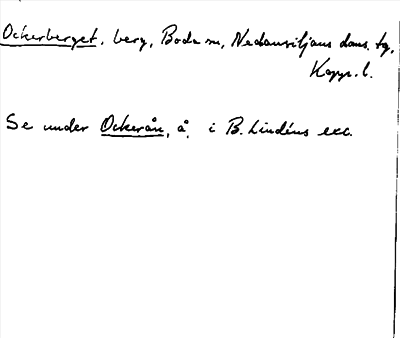 Ockerberget, berg, Boda sn, Nedansiljans doms. tg,
Kopp. l.
Se under Ockerån, å, i B. Lindéns exc.